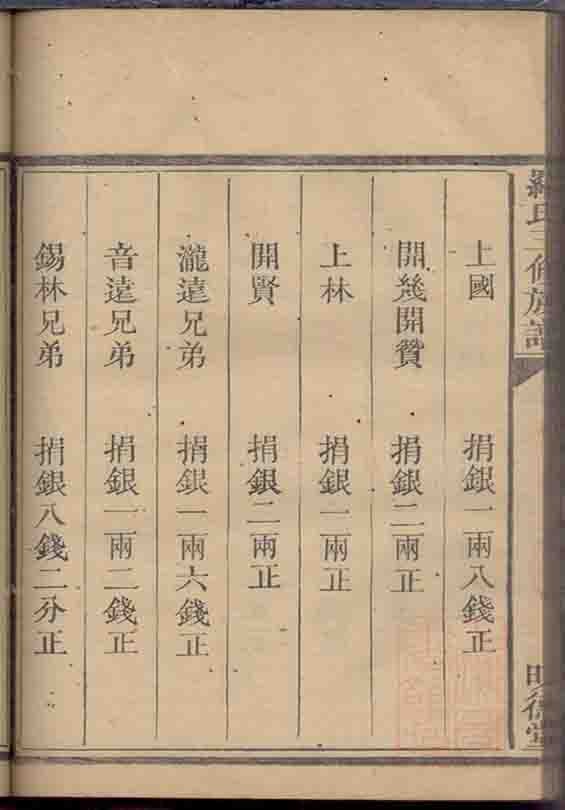 羅氏三修族譜
上國　捐銀一兩八錢正
開幾開贊　捐銀二兩正
上林　捐銀一兩正
開賢　捐銀二兩正
瀧遠兄弟　捐銀一兩六錢正
音遠兄弟　捐銀一兩二錢正
錫林兄弟　捐銀八錢二分正
明德堂